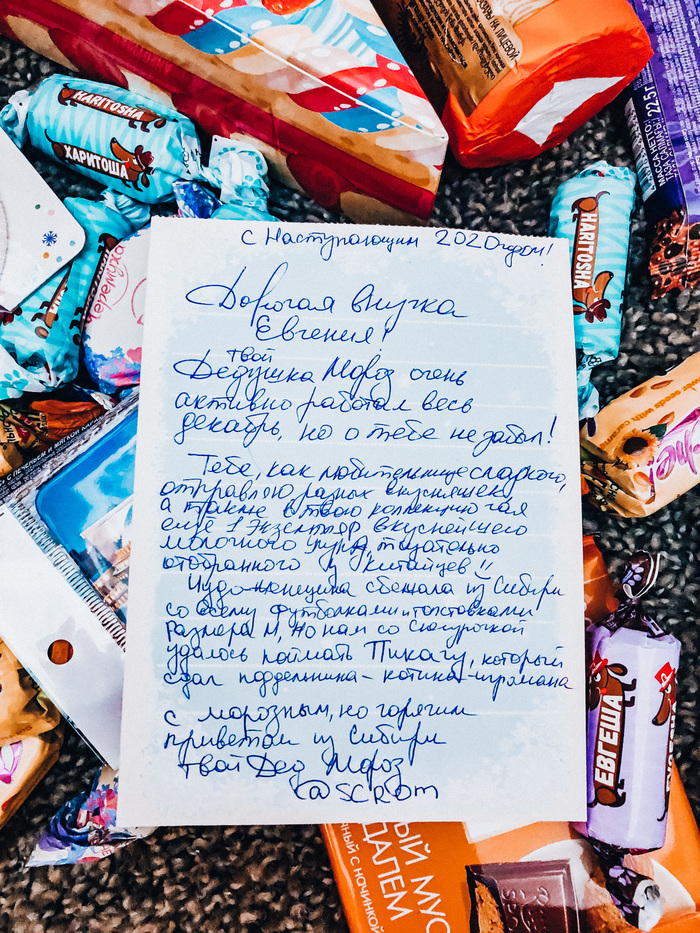 ЗАНЫ НА ЛИЦЕВОЙ
HARITOSHA
ХАРИТОША
МАССА НЕТТО:
225 г
HARITOSHA
С Наступающим 2020 годом!
Дорогая внучка
Евгения!
Твой
Дедушка Мороз очень
активно работал весь
декабрь, но о тебе не забыл!
Тебе, как любительнице сладкого,
отправляю разных вкусняшек
а также в твою коллекцию чая
еще 1 экземпляр вкуснейшего
молочного улуна, тщательно
отобранного у китайцев!!
Чудо-женщина сбежала из Сибири
со всему футболками и толстовками
размера М, но нам со Снегурочкой
удалось поймать Пикачу, который
сдал подельника - котика-игромана
С морозным, но горячим
приветом из Сибири
Твой Дед Мороз
@SCROM
ЕВГЕША
ЫЙ МУС
ДАЛЕМ
С НАЧИНКОЙ